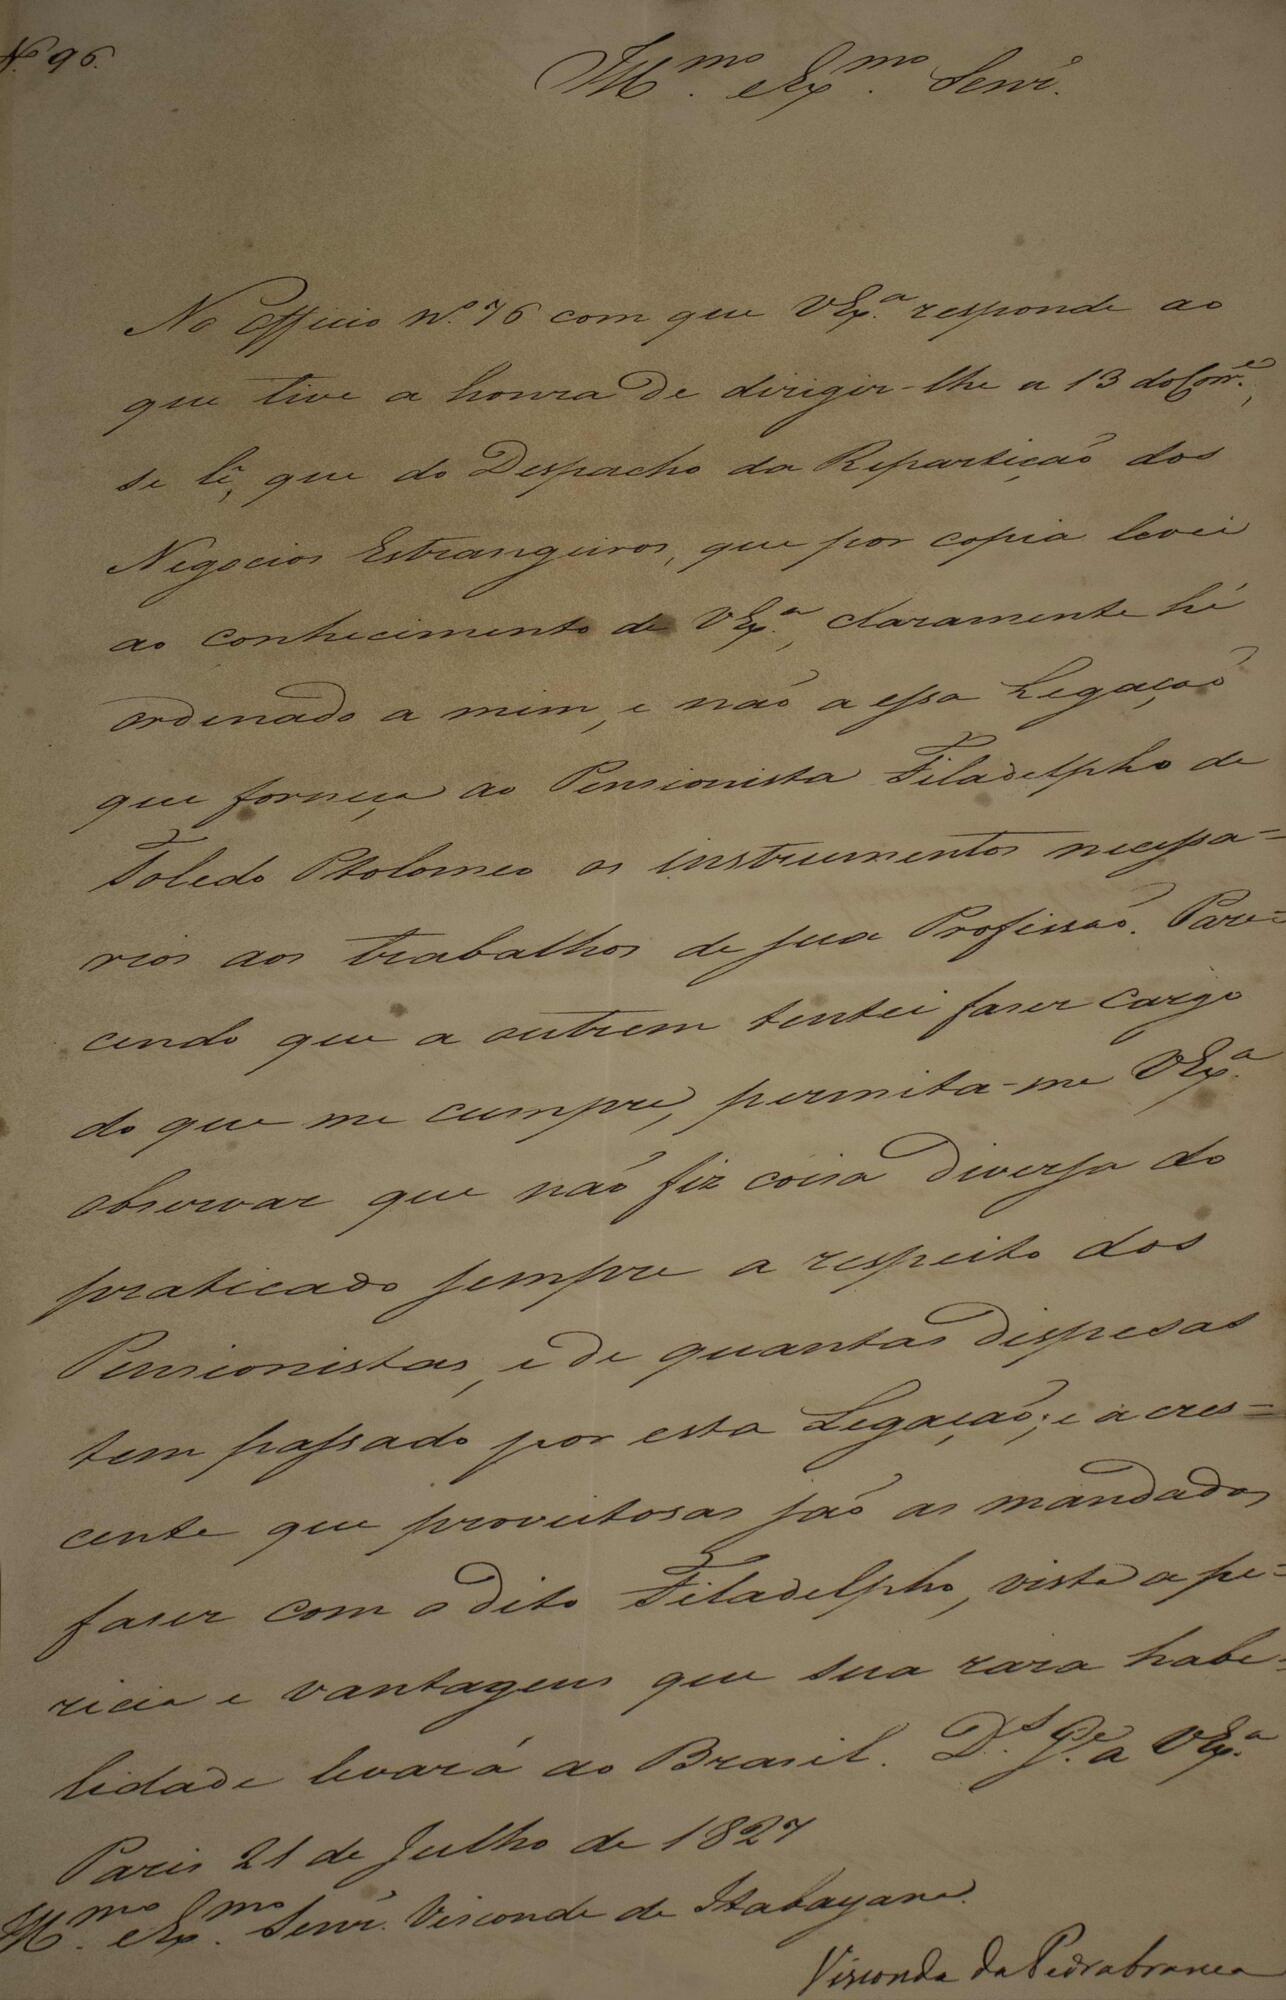 N.º 96.
Ill.mo e Ex.mo Senr.
No Officio N.º 76 com que VEx.ª responde ao
que tive a honra de dirigir-lhe a 13 do Corr.e,
se lê, que do Despacho da Repartição dos
Negocios Estrangeiros, que por copia levei
ao conhecimento de VEx.ª, claramente hé
ordenado a mim, e não a essa Legação
que forneça ao Pensionista Filadelpho de
Toledo Ptolomeo os instrumentos necessa=
rios aos trabalhos de sua Profissão. Pare=
cendo que a outrem tentei faser cargo
do que me cumpre, permita-me VEx.ª
observar que não fiz coisa diversa do
praticado sempre a respeito dos
Pensionistas, e de quantas dispesas
tem passado por esta Legação; e acres=
cente que proveitosas são as mandadas
faser com o dito Filadelpho, vista a pe=
ricia e vantagens que sua rara habe=
lidade levará ao Brasil. D.s G.e a VEx.ª
Paris 21 de Julho de 1827
Ill.mo e Ex.mo Senr. Visconde de Itabayana.
Visconde da Pedrabranca